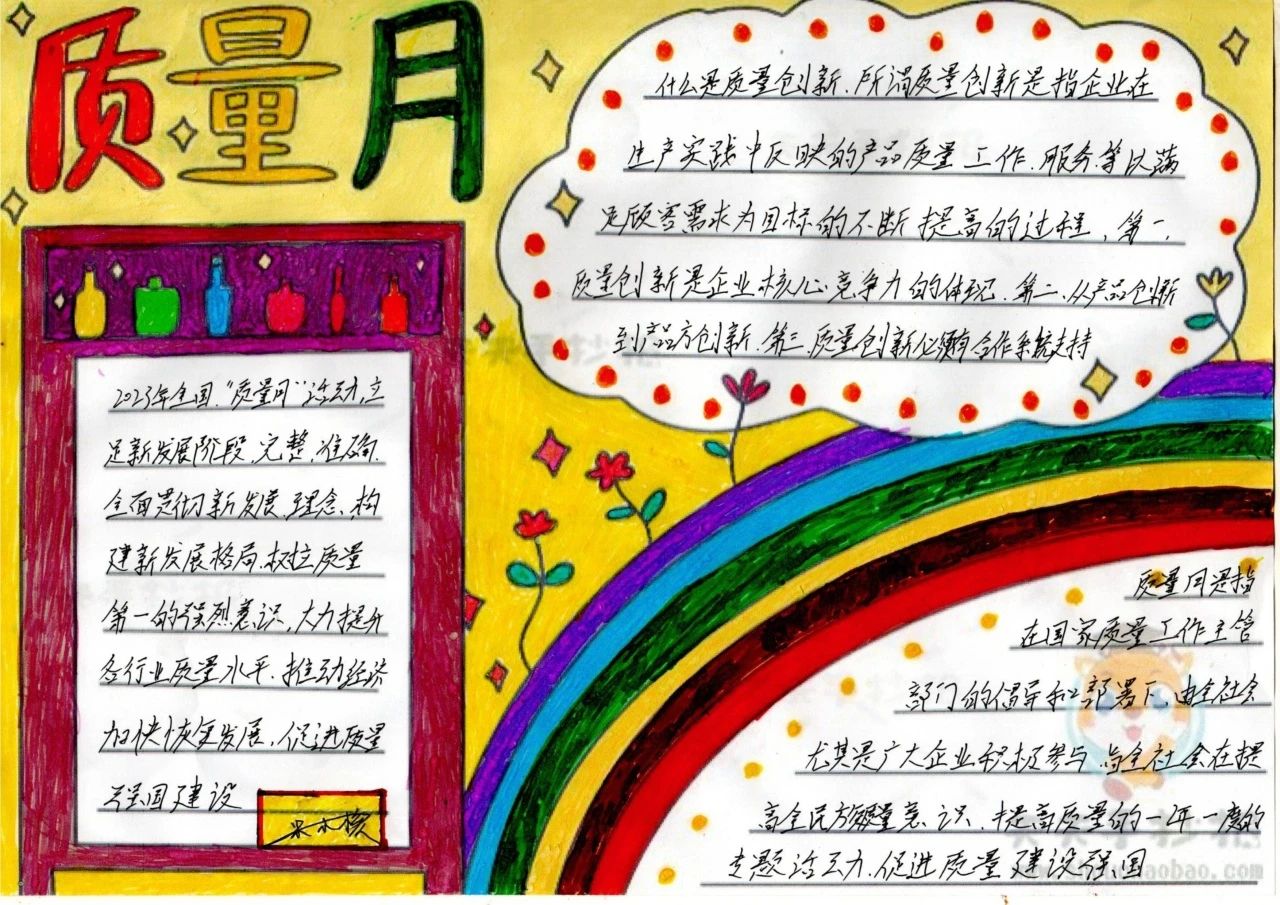 质量月
什么是质量创新、所谓质量创新是指企业在
生产实践中反映的产品质量工作、服务等以满
足顾客需求为目标的不断提高的过程、第一、
质量创新是企业核心竞争力的体现、第二、从产品创新
到产品方创新、第三、质量创新必须有合作系统支持
2023年全国“质量月”活动,立
足新发展阶段、完整、准确、
全面贯彻新发展理念、构
建新发展格局、树立质量
第一的强烈意识,大力提升
各行业质量水平、推动经济
加快恢复发展,促进质量
强国建设
质量月是指
在国家质量工作主管
部门的倡导和部署下、由全社会
尤其是广大企业积极参与、与全社会在提
高全民方质量意识、提高质量的一年一度的
专题活动、促进质量建设强国